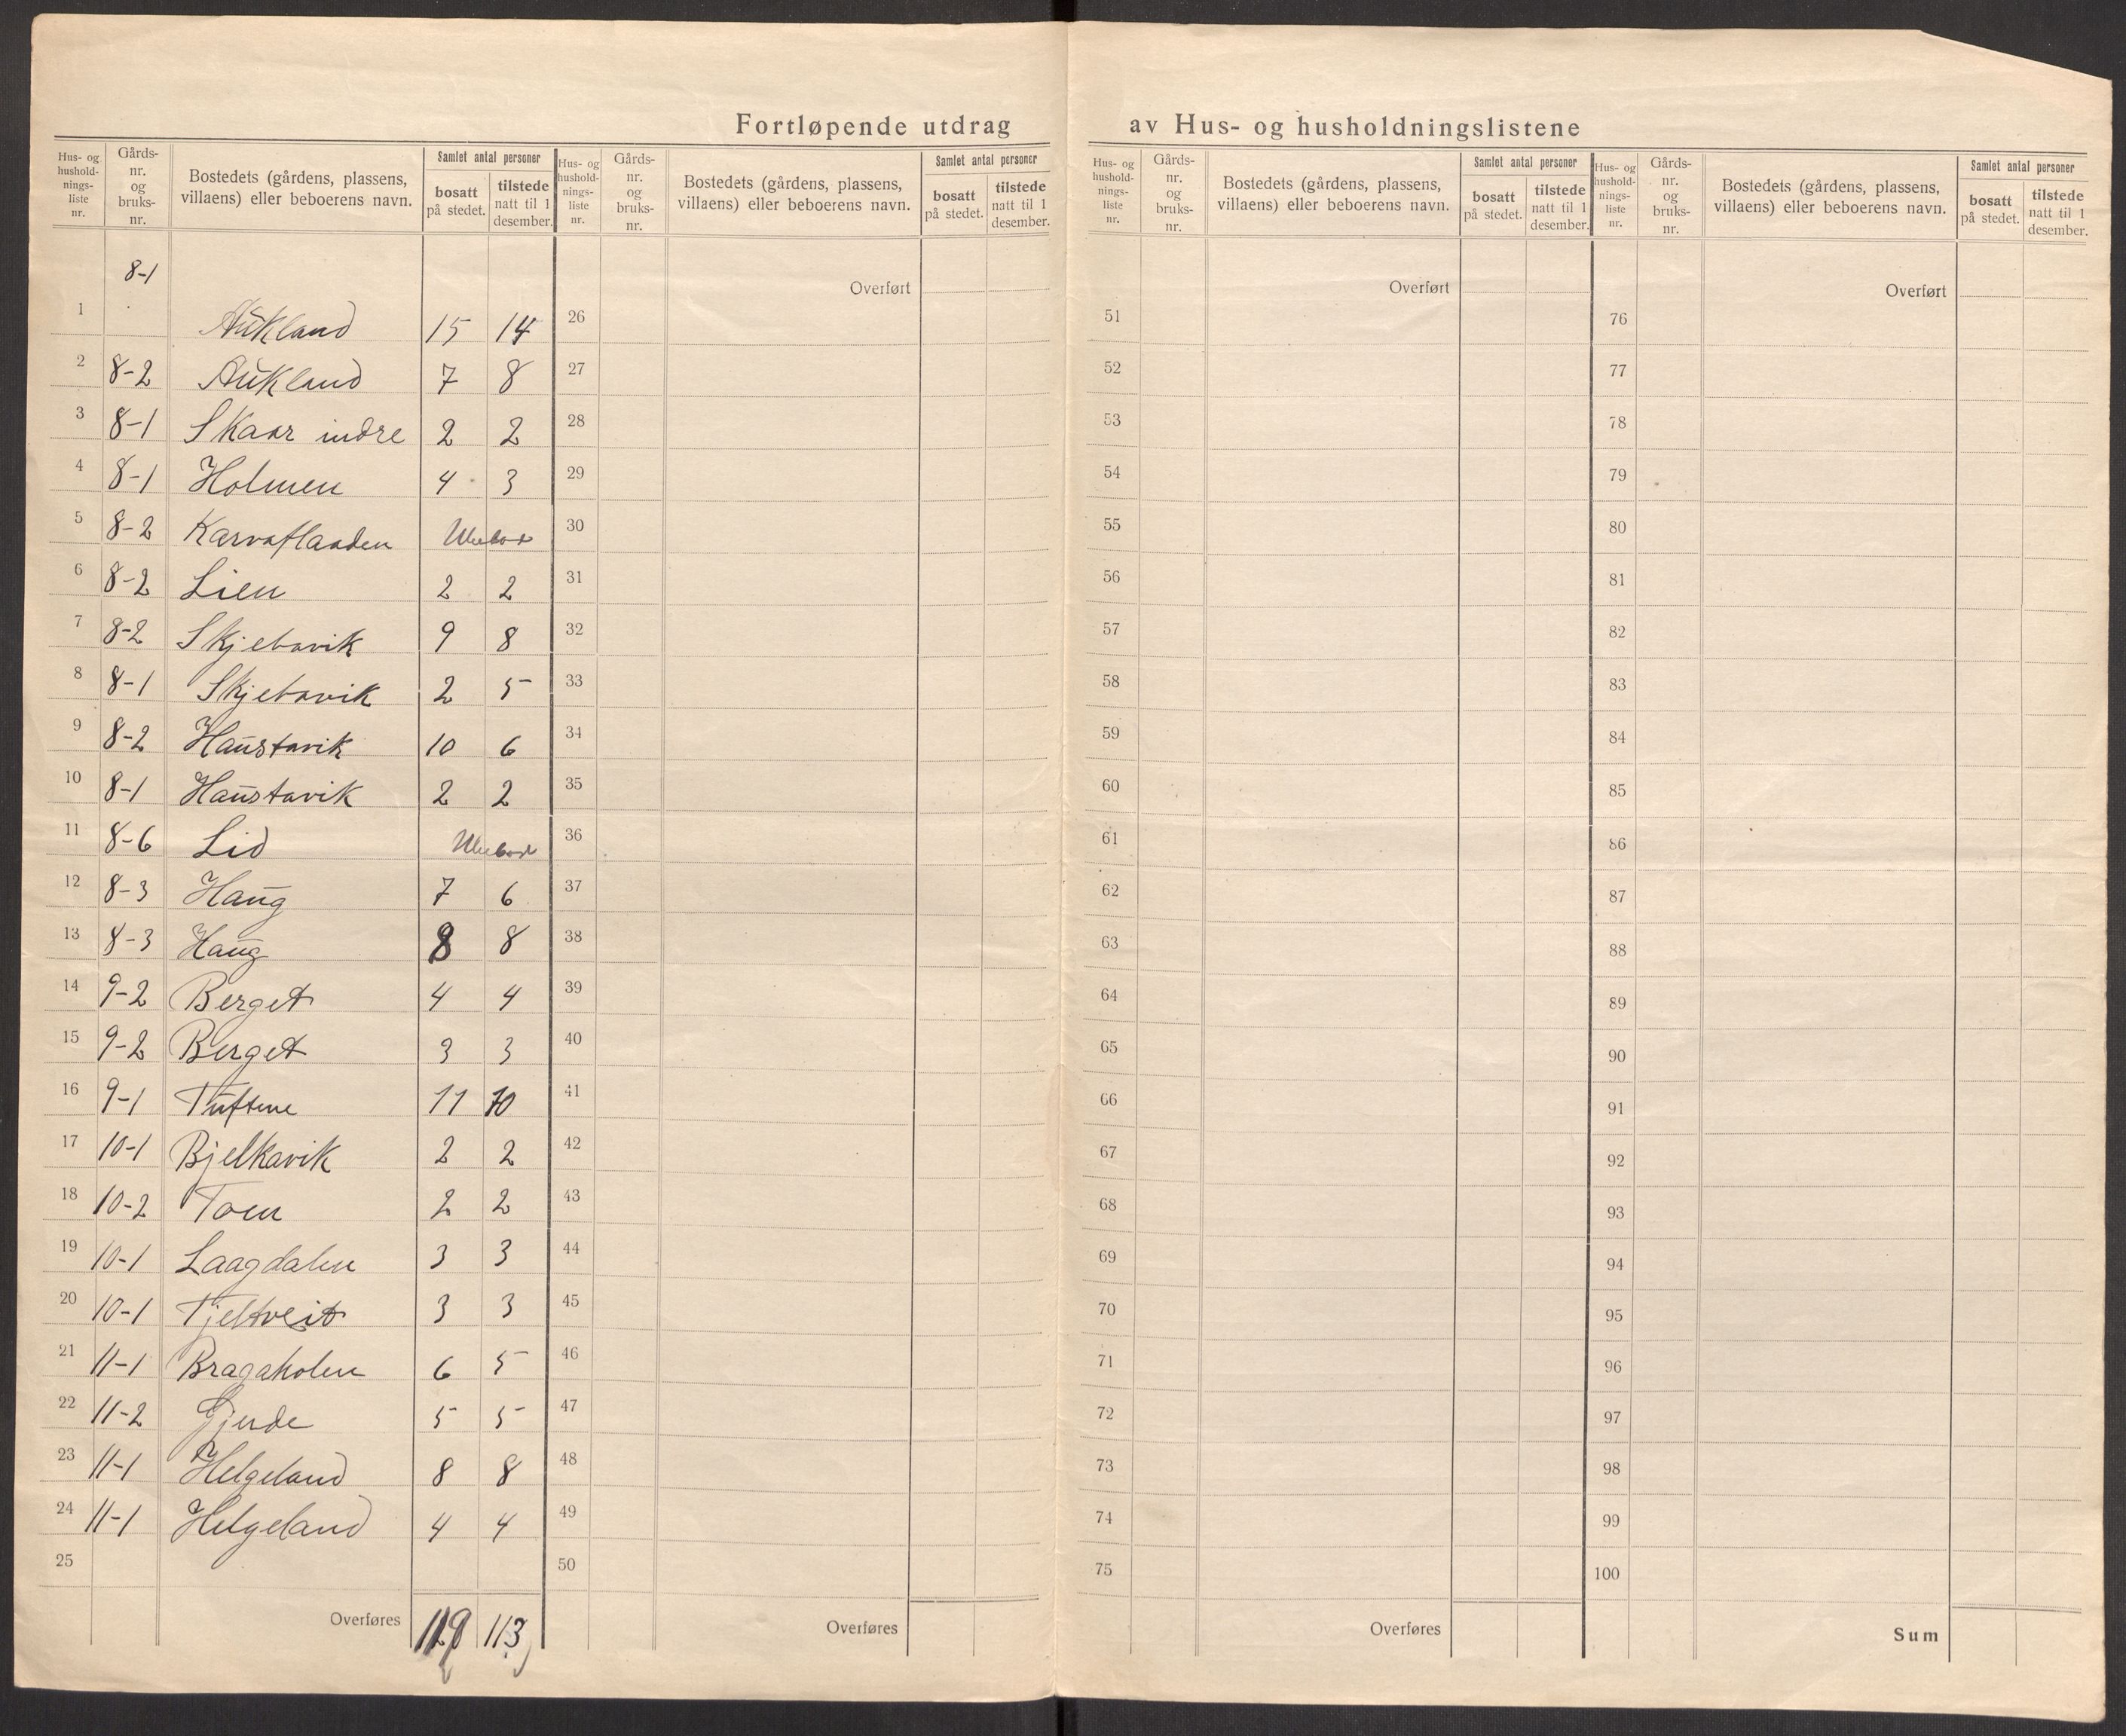 Fortløpende utdrag av Hus- og husholdningslistene
Hus- og husholdningsliste nr. Gårds-nr. og bruks-nr. Bostedets (gårdens, plassens, villaens) eller beboerens navn. Samlet antal personer bosatt på stedet. tilstede natt til 1 desember.
Hus- og husholdningsliste nr. Gårds-nr. og bruks-nr. Bostedets (gårdens, plassens, villaens) eller beboerens navn. Samlet antal personer bosatt på stedet. tilstede natt til 1 desember.
Hus- og husholdningsliste nr. Gårds-nr. og bruks-nr. Bostedets (gårdens, plassens, villaens) eller beboerens navn. Samlet antal personer bosatt på stedet. tilstede natt til 1 desember.
Hus- og husholdningsliste nr. Gårds-nr. og bruks-nr. Bostedets (gårdens, plassens, villaens) eller beboerens navn. Samlet antal personer bosatt på stedet. tilstede natt til 1 desember.
8-1 Overført Overført Overført
1 Aukland 15 14 26 51 76
2 8-2 Aukland 7 8 27 52 77
3 8-1 Skaar indre 2 2 28 53 78
4 8-1 Holmen 4 3 29 54 79
5 8-2 Karvaflaaden Ubebod 30 55 80
6 8-2 Lien 2 2 31 56 81
7 8-2 Skjebavik 9 8 32 57 82
8 8-1 Skjebavik 2 5 33 58 83
9 8-2 Haustavik 10 6 34 59 84
10 8-1 Haustavik 2 2 35 60 85
11 8-6 Lid Ubebod 36 61 86
12 8-3 Haug 7 6 37 62 87
13 8-3 Haug 8 8 38 63 88
14 9-2 Berget 4 4 39 64 89
15 9-2 Berget 3 3 40 65 90
16 9-1 Tuftene 11 10 41 66 91
17 10-1 Bjelkavik 2 2 42 67 92
18 10-2 Toen 2 2 43 68 93
19 10-1 Laagdalen 3 3 44 69 94
20 10-1 Tjeltveit 3 3 45 70 95
21 11-1 Bragaholen 6 5 46 71 96
22 11-2 Gjerde 5 5 47 72 97
23 11-1 Helgeland 8 8 48 73 98
24 11-1 Helgeland 4 4 49 74 99
25 50 75 100
Overføres 119 113 Overføres Overføres Sum